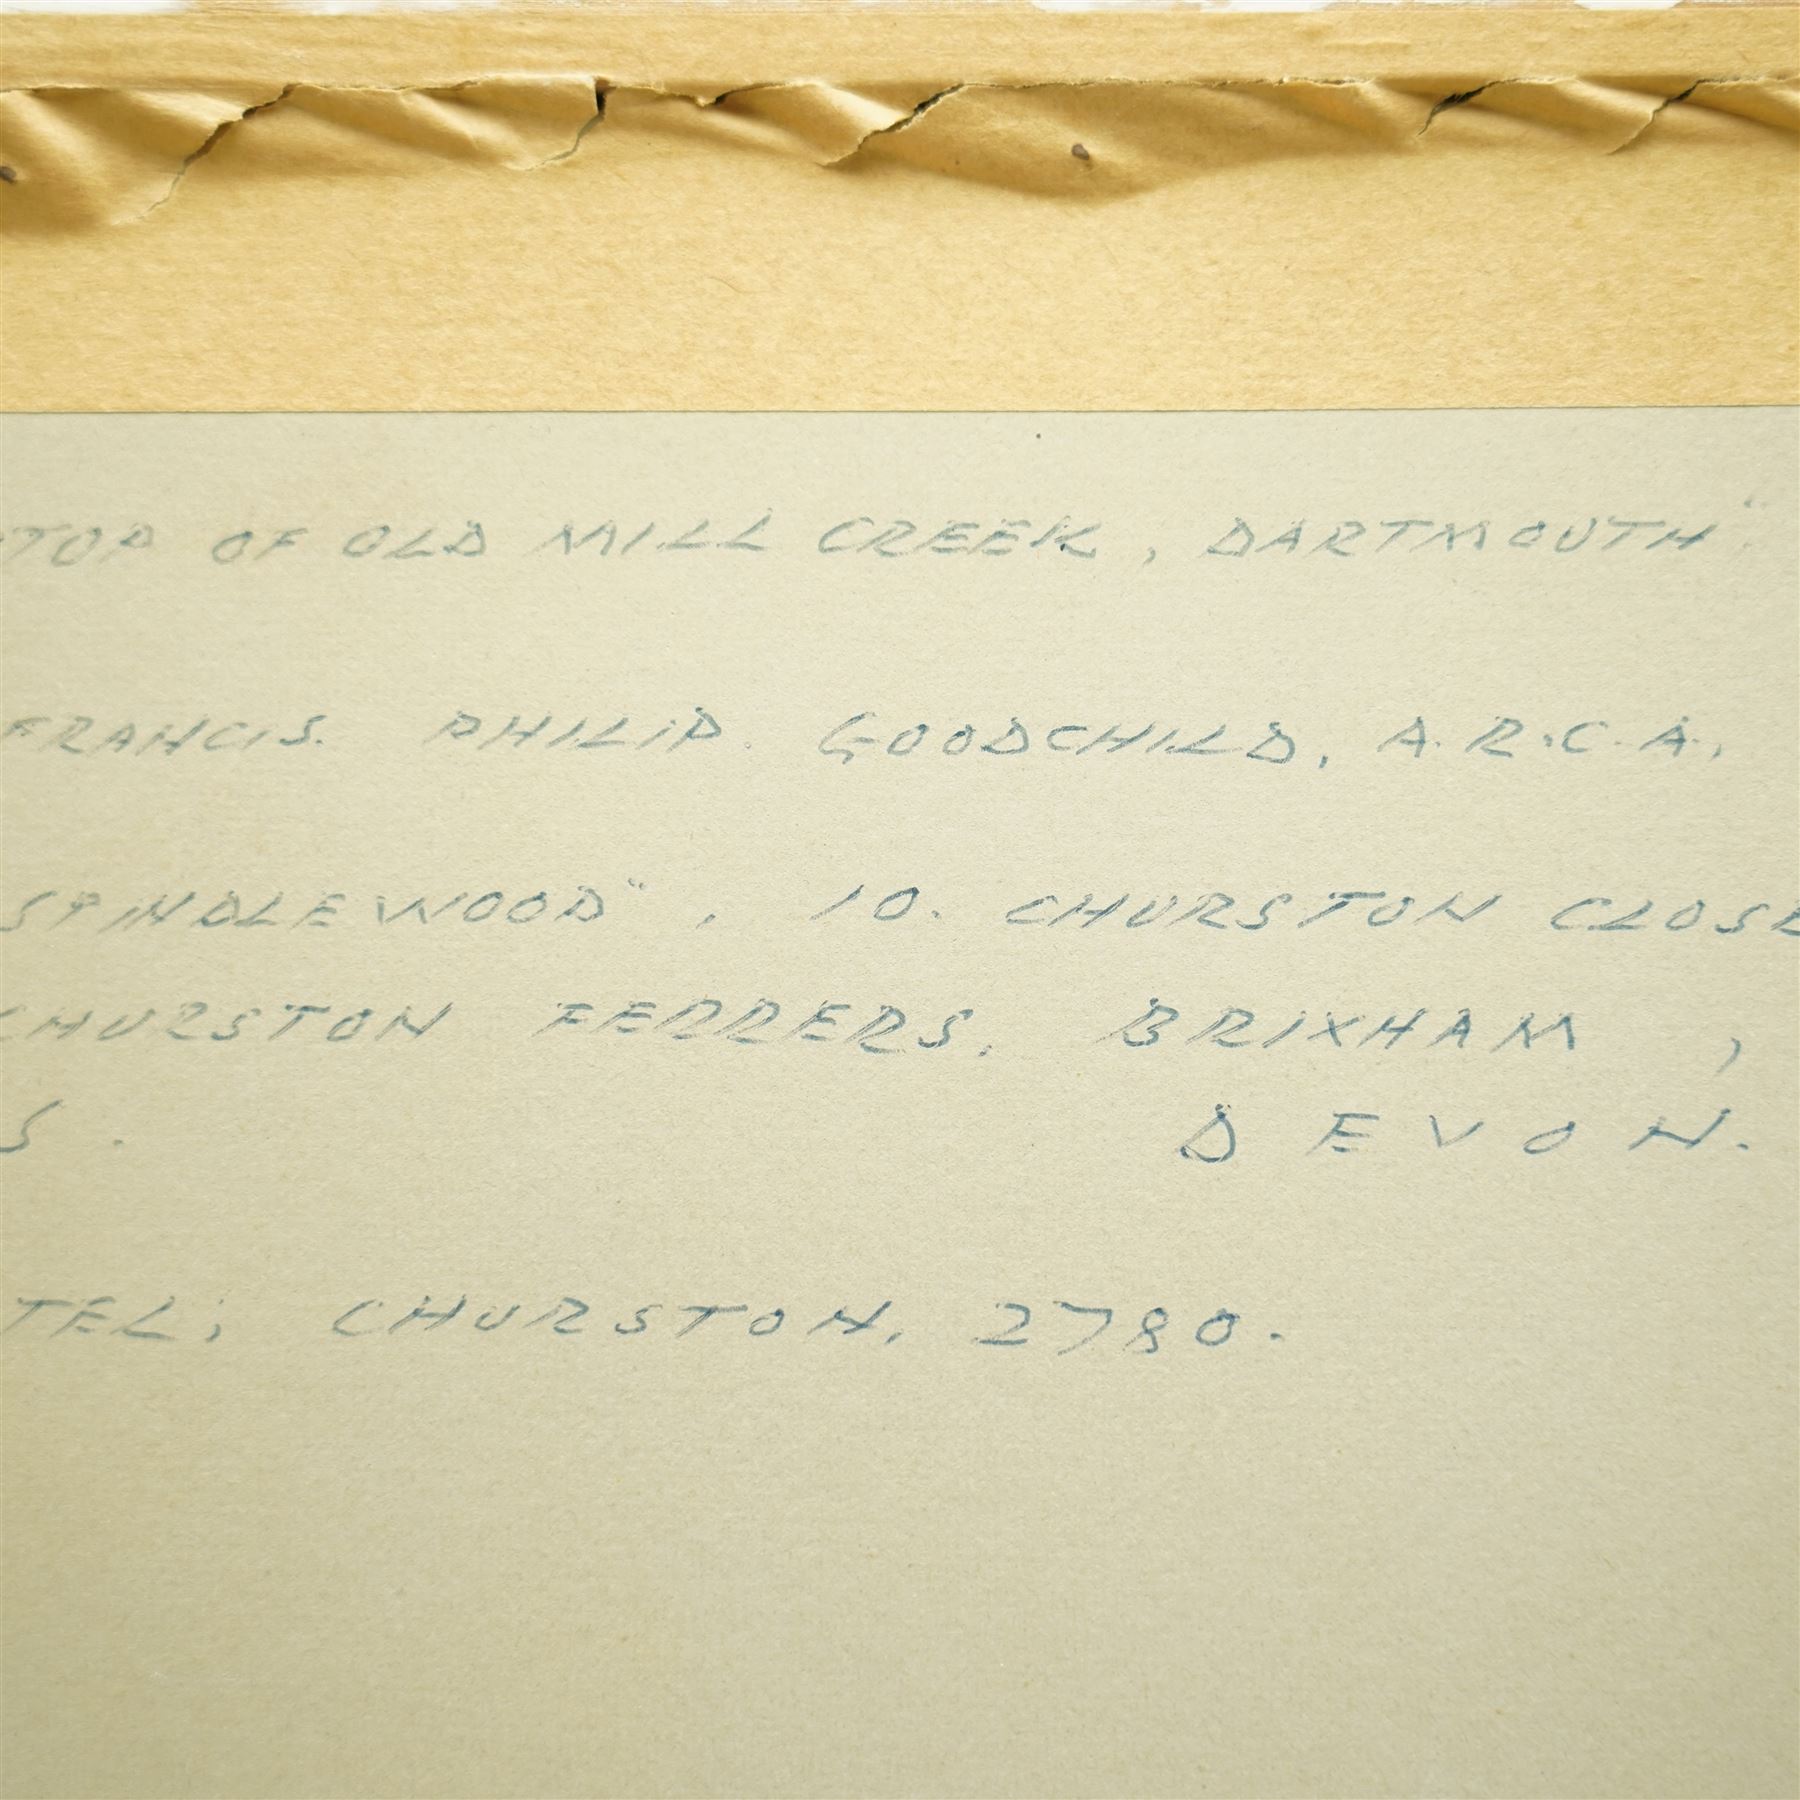 TOP OF OLD MILL CREEK, DARTMOUTH"
FRANCIS. PHILIP. GOODCHILD, A.R.C.A.,
SPINDLEWOOD", 10. CHURSTON CLOSE
CHURSTON FERRERS. BRIXHAM,
S. DEVON.
TEL; CHURSTON, 2780.